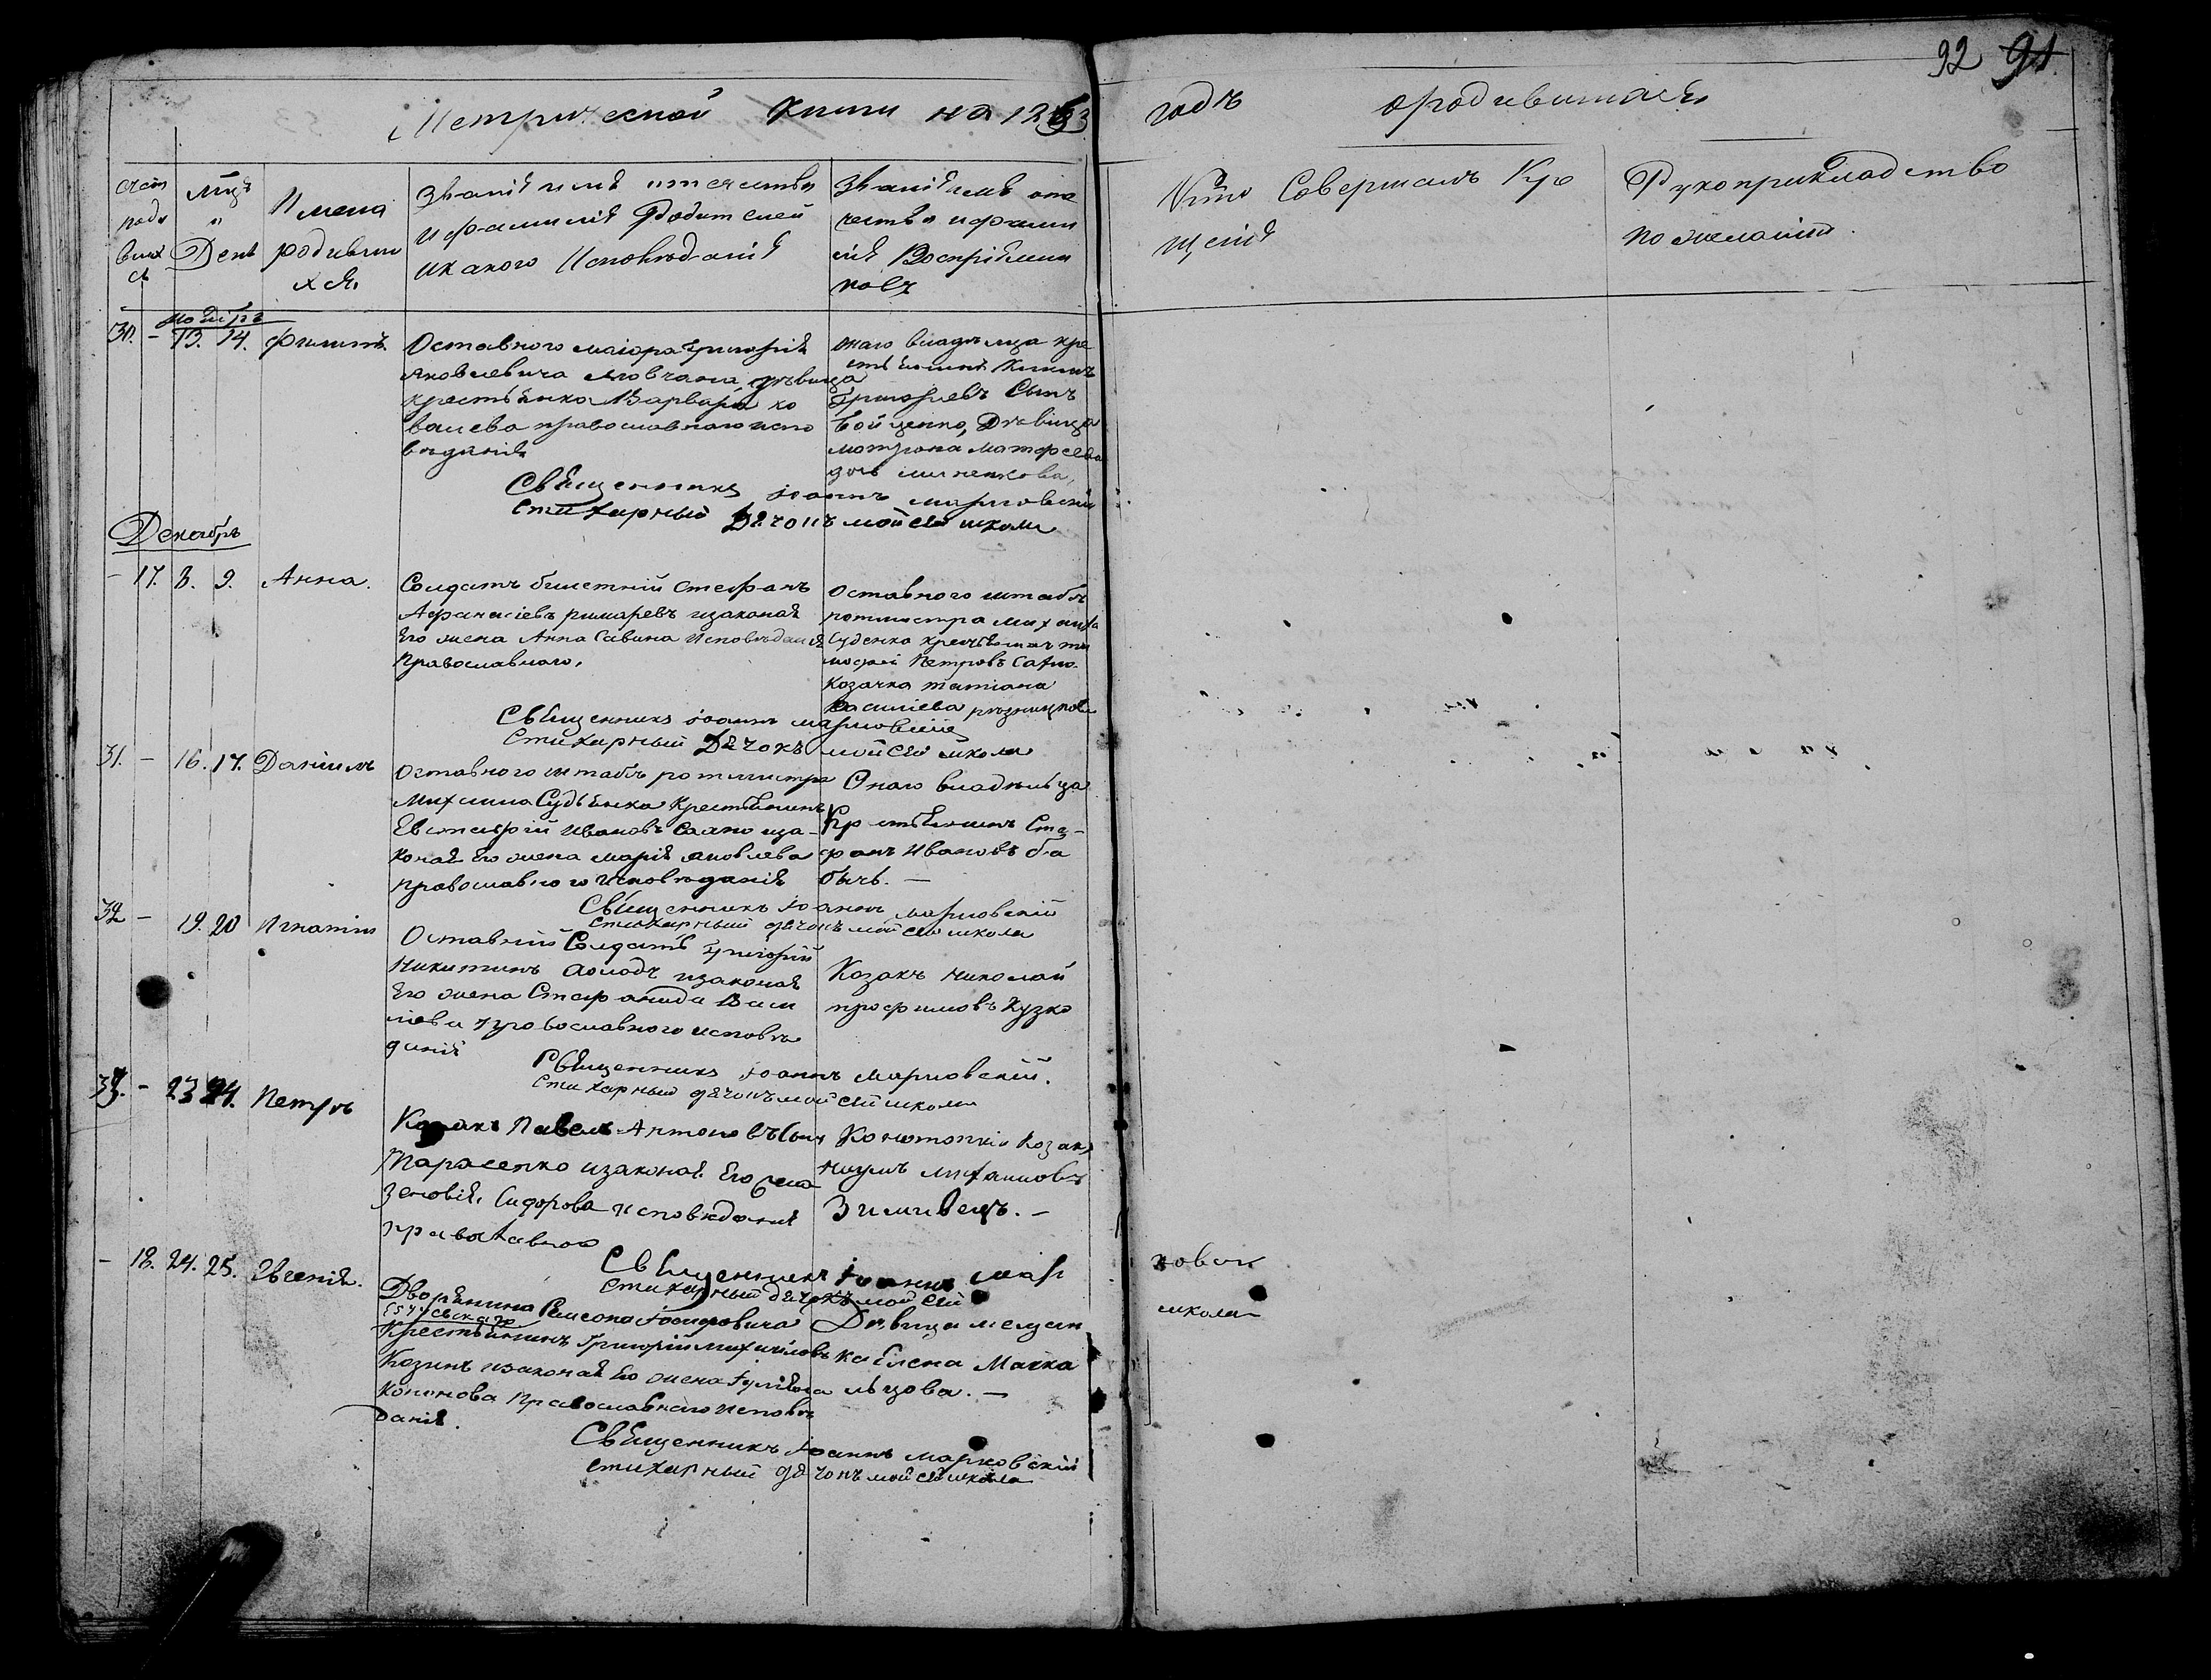 92 91
Метрической книги на 18
годъ о родившихся
Мцъ и День
Имена родившихся
Званіе имя отечество
и фамилія Родителей
и какого Исповѣданія
Званіе имя оте
чество и фами
лія Воспріемни
ковъ
Кто Совершалъ Кре
щенія
Рукоприкладство
по желанію.
30. - 13. 14. Филипъ.
Оставного маіора Григорія
Яковлевича Мовчана дѣвица
крестьянка Варвара Ко
валева православнаго испо
вѣданія
онаго владѣльца кре
стьянинъ
Григорьевъ Сынъ
Бойченко, Дѣвица
Мотрона Матфеева
дочь
Священникъ Іоаннъ Марковскій
Стихарный Дячокъ Мойсей Школа
Декабрь
- 17. 8. 9. Анна.
Солдатъ билетній Стефанъ
Афанасіевъ Римаревъ изаконая
Его жена Анна Савина Исповѣданія
Православного.
Оставного штабъ
ротмистра Михаила
Суденка крестьянинъ Ти
мофей Петровъ
Козачка Татіана
Василіева
Священникъ Іоаннъ Марковскій
Стихарный Дячокъ Мойсей Школа
31. - 16. 17. Даніилъ
Оставного штабъ ротмистра
Михаила Судьенка Крестьянинъ
Евстафій Ивановъ иза-
коная Его жена Марія Яковлева
православного Исповѣданія
Онаго владѣльца
Крестьянинъ Сте-
фанъ Ивановъ Ба
бичь. -
Священникъ Іоаннъ Марковскій
Стихарный дячокъ Мойсей Школа
32 - 19. 20 Игнатій
Оставній Солдатъ Григорій
Никитинъ изаконая
Его жена Стефанида Васи
ліева православного исповѣ
данія
Козакъ Николай
Трофимовъ Кузко
Священникъ Іоаннъ Марковскій.
Стихарный дячокъ Мойсей Школа
33. - 23 24. Петръ
Козакъ Павелъ Антоновъ Сынъ
Тарасенко изаконая Его жена
Зеновія Сидорова исповѣданія
православного
Конотопкій Козакъ
Наумъ Михаиловъ
Зимивецъ. -
Священникъ Іоаннъ Мар
ковскій
Стихарный дячокъ Мойсей
Школа
- 18. 24. 25. Евгенія.
Дворянина Самсона Іосифовича
Крестьянинъ Григорій Михаиловъ
Козинъ изаконая Его жена Іуліяна
Кононова Православнаго Исповѣ
данія.
Дѣвица мещан
ка Елена Мачка
льцова. -
Священникъ Іоаннъ Марковскій
Стихарный дячокъ Мойсей Школа